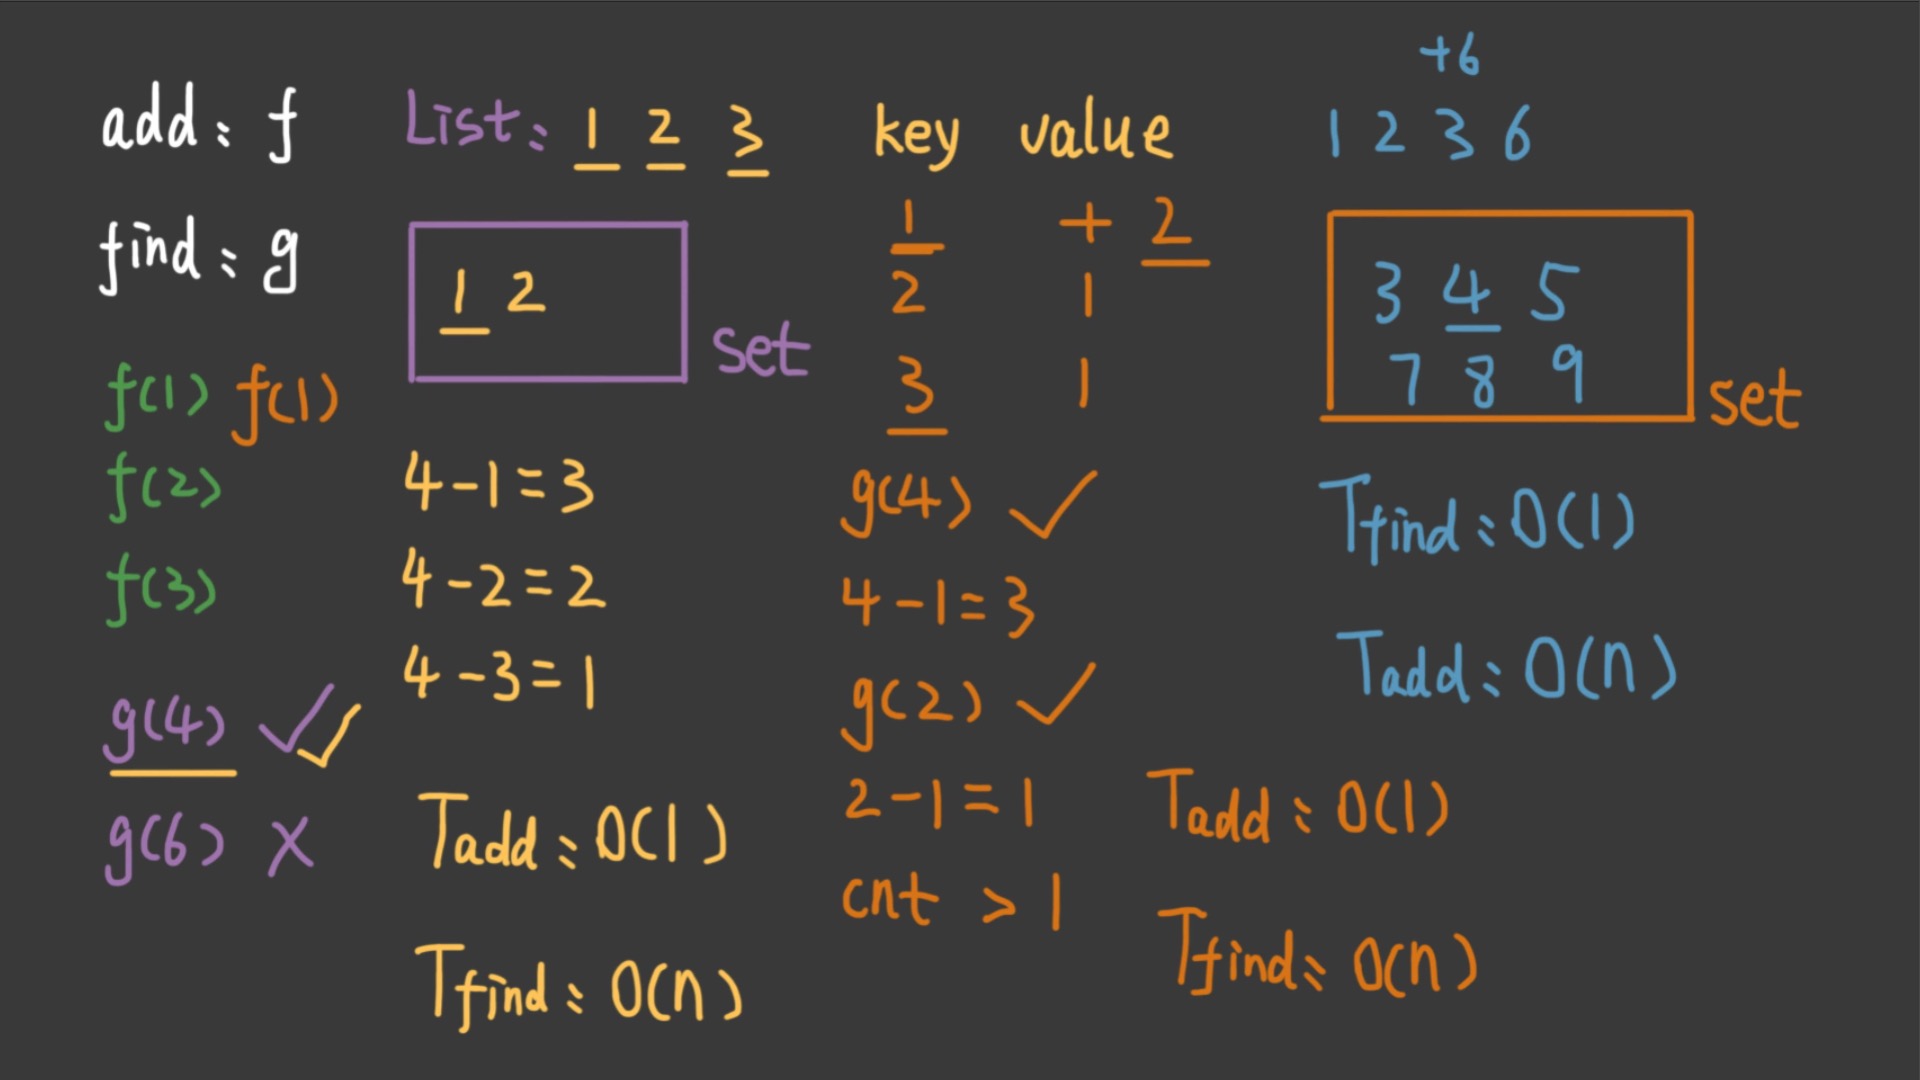 add: f
find: g
f(1) f(1)
f(2)
f(3)
g(4) ✓✓
g(6) X
List: 1 2 3
1 2
set
4-1=3
4-2=2
4-3=1
Tadd: O(1)
Tfind: O(n)
key value
1 + 2
2 1
3 1
g(4) ✓
4-1=3
g(2) ✓
2-1=1
cnt > 1
Tadd: O(1)
Tfind: O(n)
+6
1 2 3 6
3 4 5
7 8 9
set
Tfind: O(1)
Tadd: O(n)